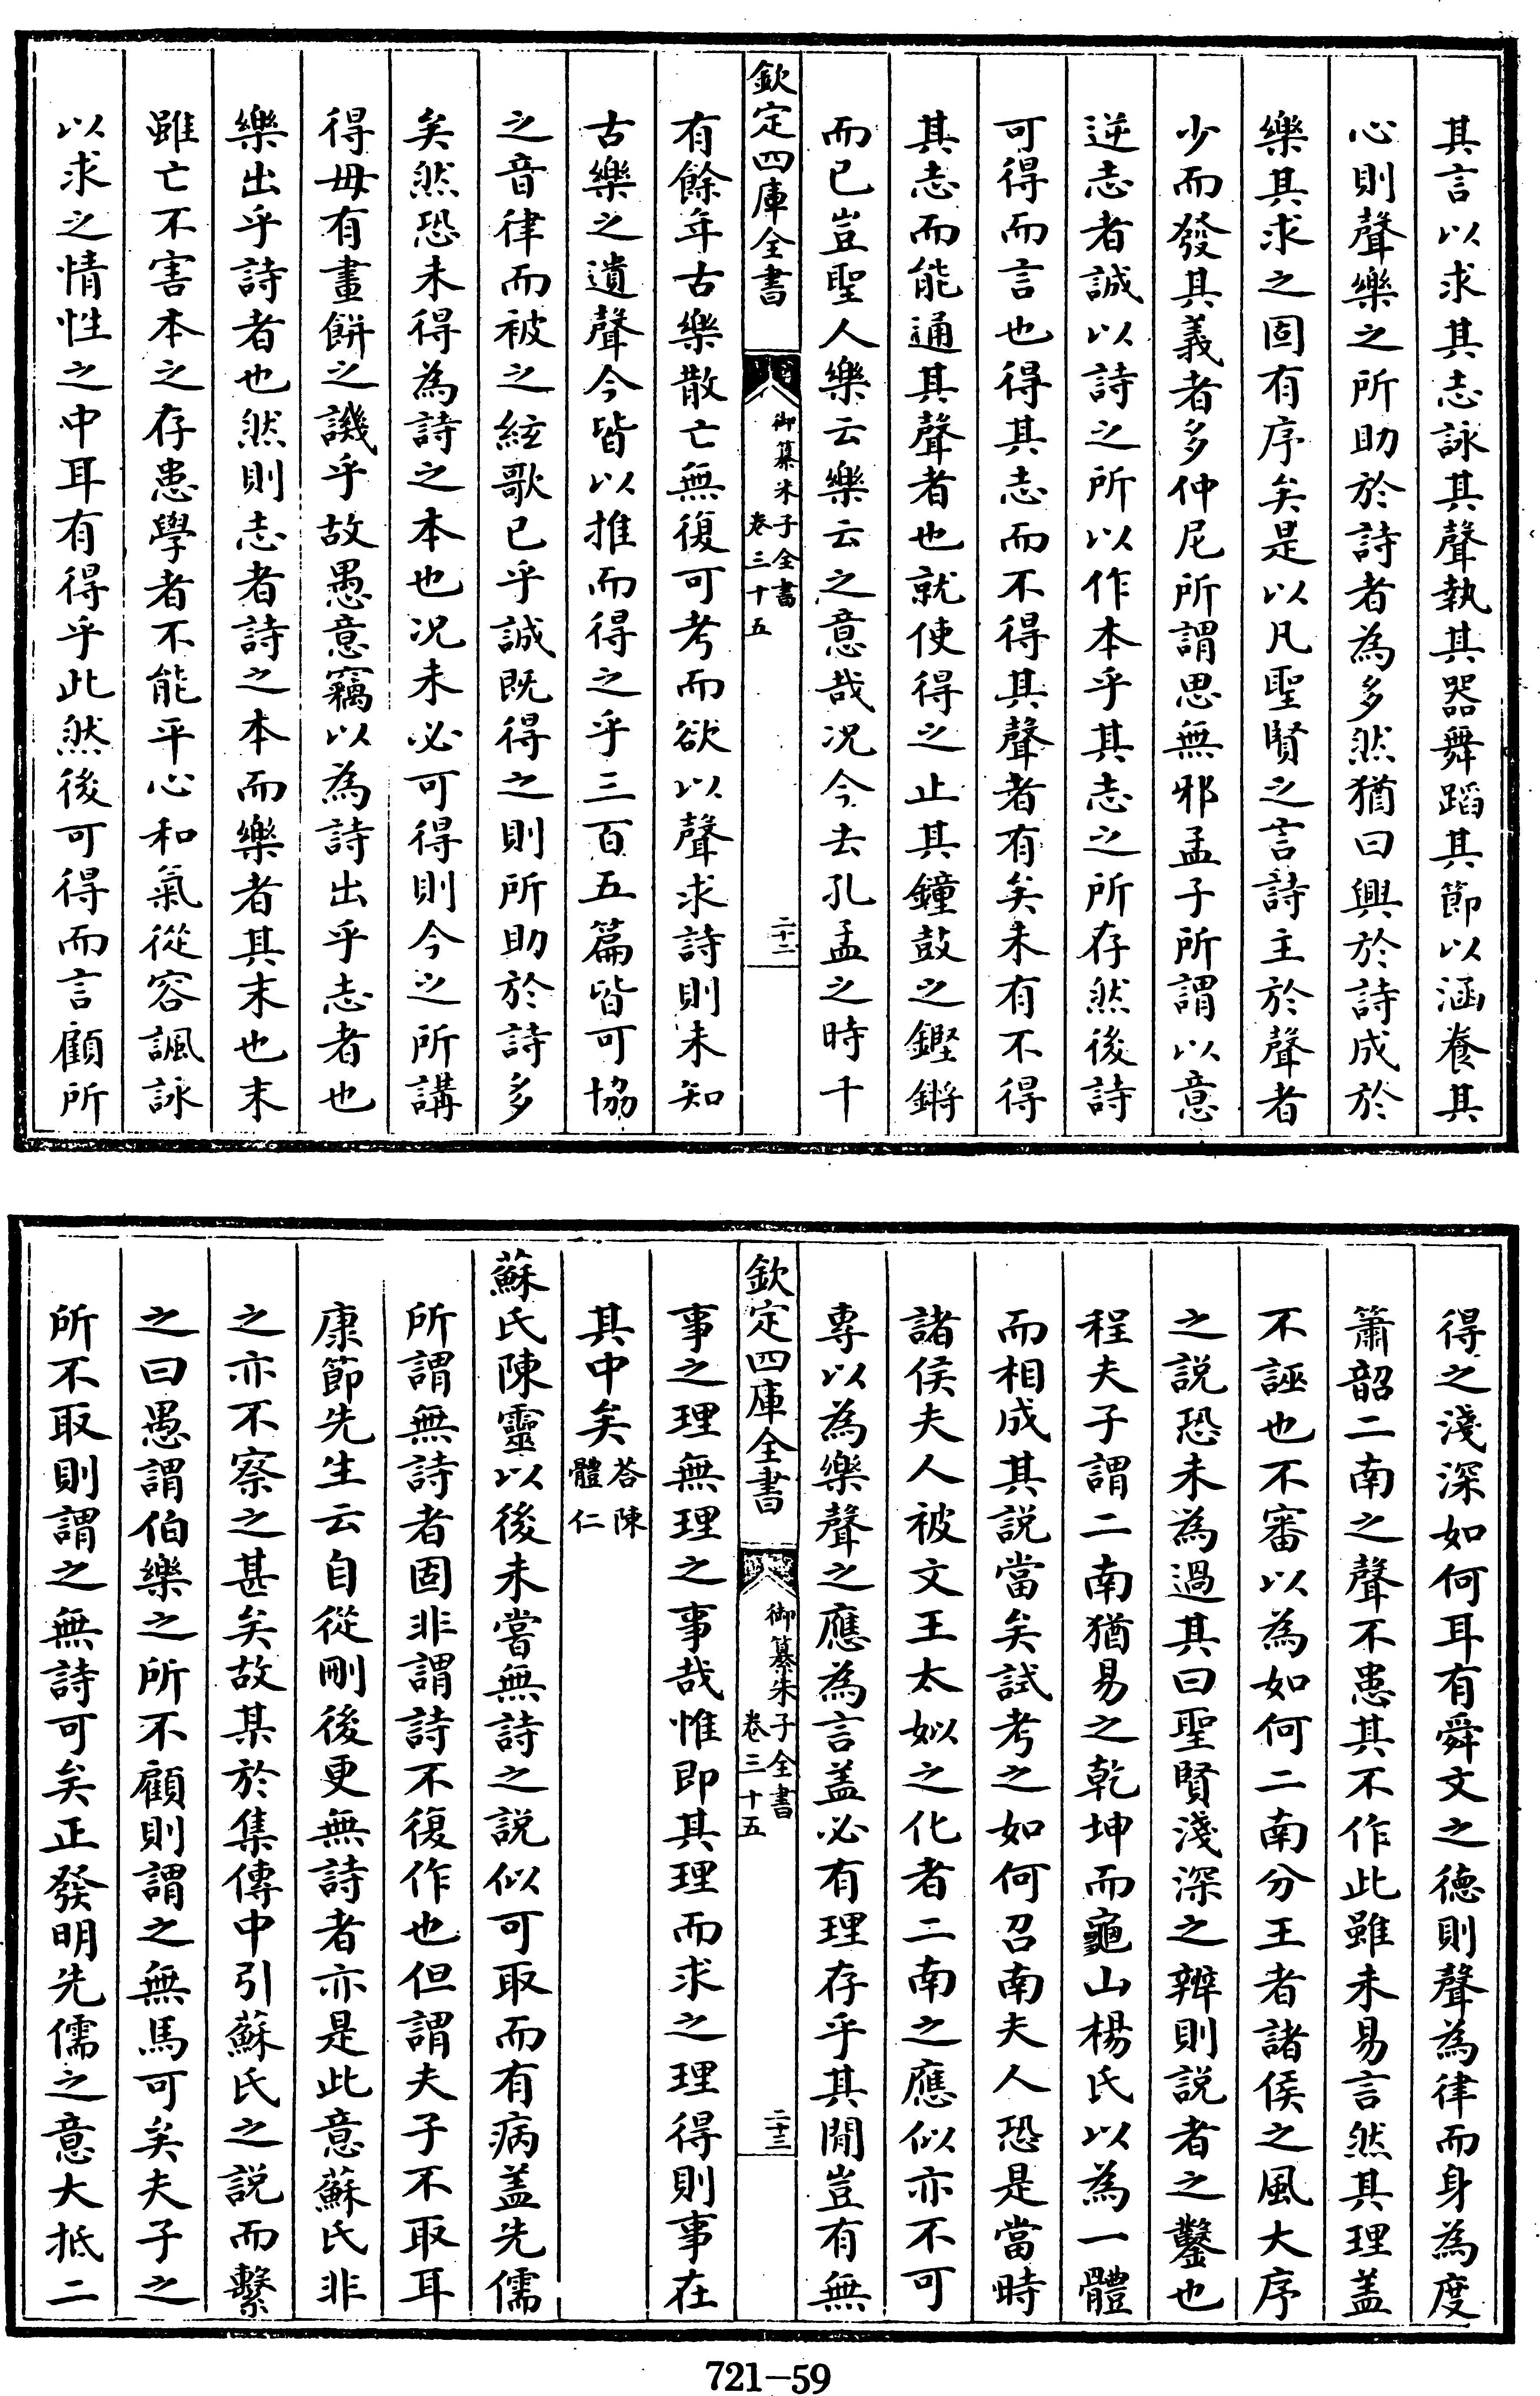 其言以求其志詠其聲執其器舞蹈其節以涵養其
心則聲樂之所助於詩者為多然猶曰興於詩成於
樂其求之固有序矣是以凡聖賢之言詩主於聲者
少而發其義者多仲尼所謂思無邪孟子所謂以意
逆志者誠以詩之所以作本乎其志之所存然後詩
可得而言也得其志而不得其聲者有矣未有不得
其志而能通其聲者也就使得之止其鐘鼓之鏗鏘
而已豈聖人樂云樂云之意哉况今去孔孟之時千
欽定四庫全書
御纂朱子全書
卷三十五
二十二
有餘年古樂散亡無復可考而欲以聲求詩則未知
古樂之遺聲今皆以推而得之乎三百五篇皆可協
之音律而被之絃歌已乎誠既得之則所助於詩多
矣然恐未得為詩之本也况未必可得則今之所講
得毋有畫餅之譏乎故愚意竊以為詩出乎志者也
樂出乎詩者也然則志者詩之本而樂者其末也末
雖亡不害本之存患學者不能平心和氣從容諷詠
以求之情性之中耳有得乎此然後可得而言顧所
得之淺深如何耳有舜文之德則聲為律而身為度
簫韶二南之聲不患其不作此雖未易言然其理蓋
不誣也不審以為如何二南分王者諸侯之風大序
之說恐未為過其曰聖賢淺深之辨則說者之鑿也
程夫子謂二南猶易之乾坤而龜山楊氏以為一體
而相成其說當矣試考之如何召南夫人恐是當時
諸侯夫人被文王太姒之化者二南之應似亦不可
專以為樂聲之應為言蓋必有理存乎其間豈有無
欽定四庫全書
御纂朱子全書
卷三十五
二十三
事之理無理之事哉惟即其理而求之理得則事在
其中矣答陳體仁
蘇氏陳靈以後未嘗無詩之說似可取而有病蓋先儒
所謂無詩者固非謂詩不復作也但謂夫子不取耳
康節先生云自從刪後更無詩者亦是此意蘇氏非
之亦不察之甚矣故某於集傳中引蘇氏之說而繫
之曰愚謂伯樂之所不顧則謂之無馬可矣夫子之
所不取則謂之無詩可矣正發明先儒之意大抵二
721—59